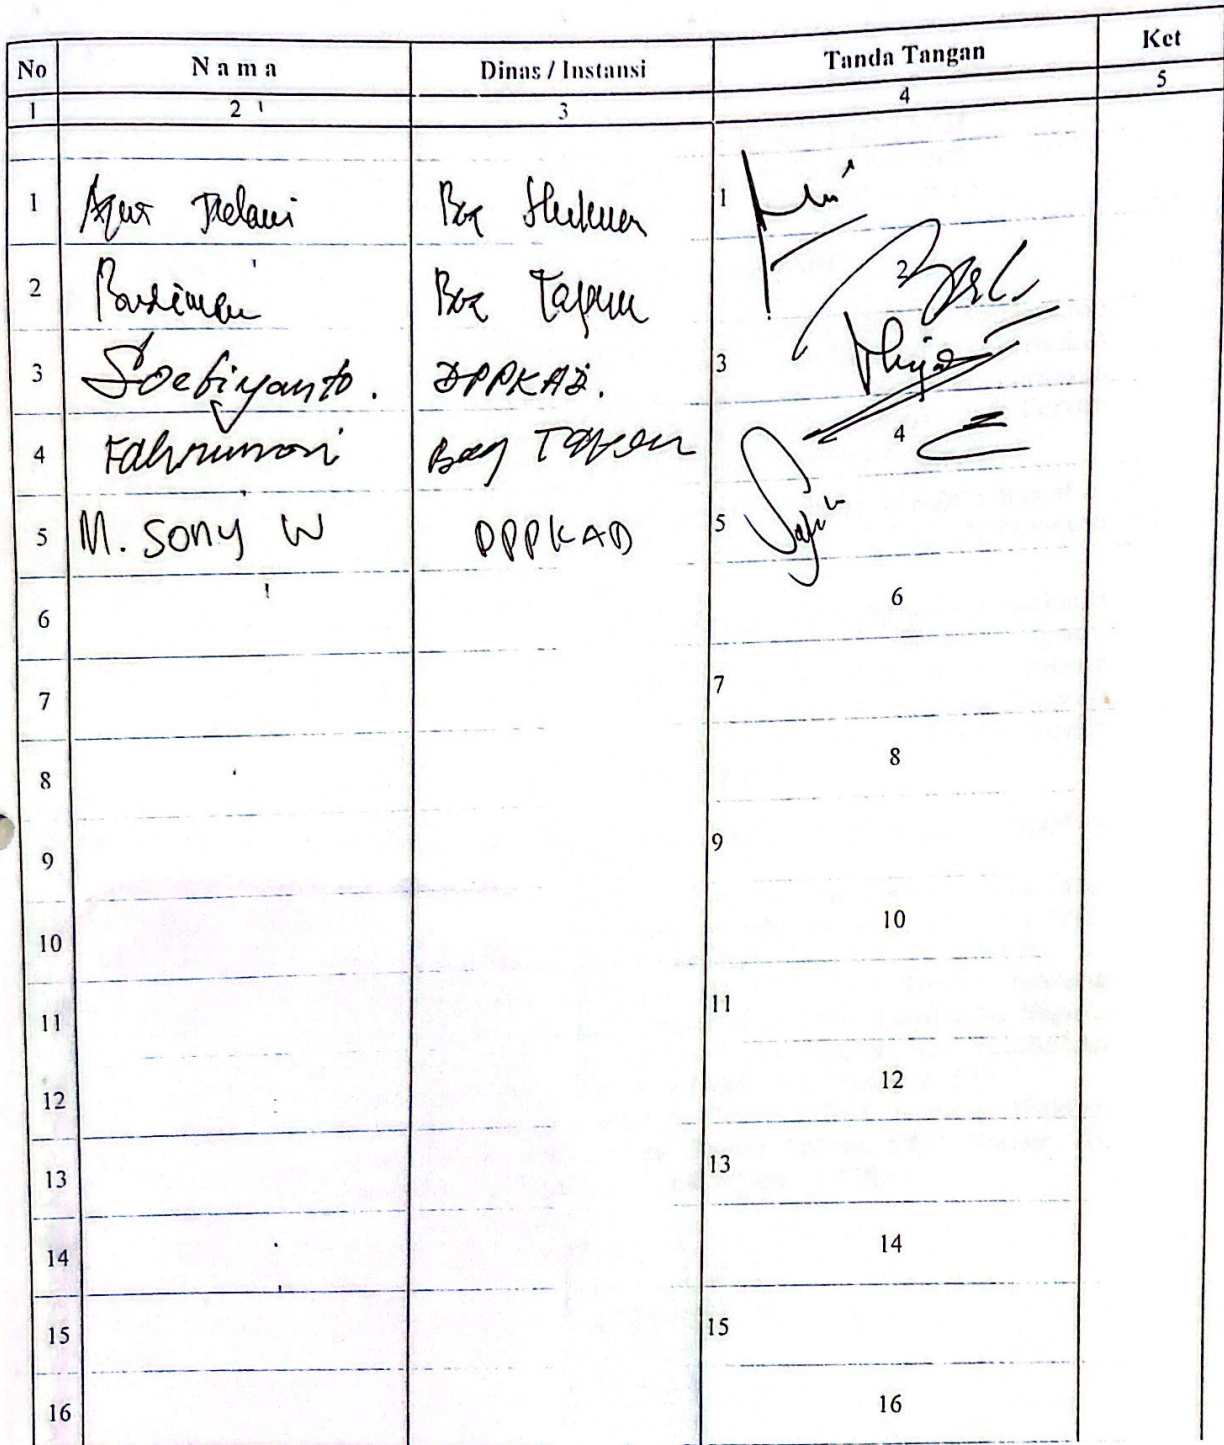 No Nama Dinas / Instansi Tanda Tangan Ket
1 2 3 4 5
1 Agus Bag 1
2 Budiman Bag Tapem 2
3 Soebiyanto. DPPKAD. 3
4 Fahrurrozi Bag Tapem 4
5 M. Sony W DPPKAD 5
6 6
7 7
8 8
9 9
10 10
11 11
12 12
13 13
14 14
15 15
16 16